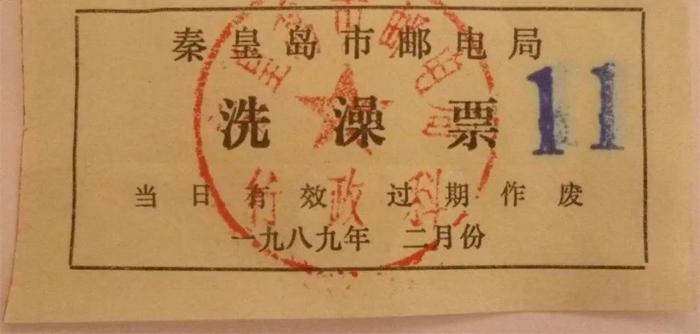 秦皇岛市邮电局
洗澡票
11
当日有效 过期作废
一九八九年 二月份
行政科